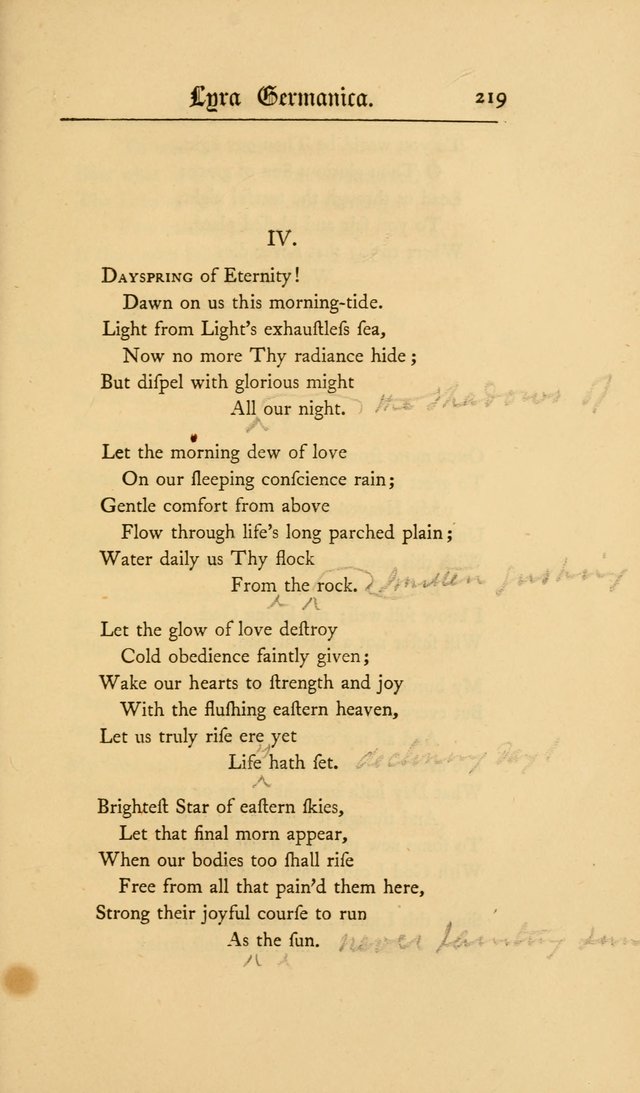 Lyra Germanica. 219
IV.
DAYSPRING of Eternity!
Dawn on us this morning-tide.
Light from Light's exhauſtleſs ſea,
Now no more Thy radiance hide;
But diſpel with glorious might
All our night. the shadows of
Let the morning dew of love
On our ſleeping conſcience rain;
Gentle comfort from above
Flow through life's long parched plain;
Water daily us Thy flock
From the rock. smitten gushing
Let the glow of love deſtroy
Cold obedience faintly given;
Wake our hearts to ſtrength and joy
With the fluſhing eaſtern heaven,
Let us truly riſe ere yet
Life hath ſet. declining
Brighteſt Star of eaſtern ſkies,
Let that final morn appear,
When our bodies too ſhall riſe
Free from all that pain'd them here,
Strong their joyful courſe to run
As the ſun. never fainting